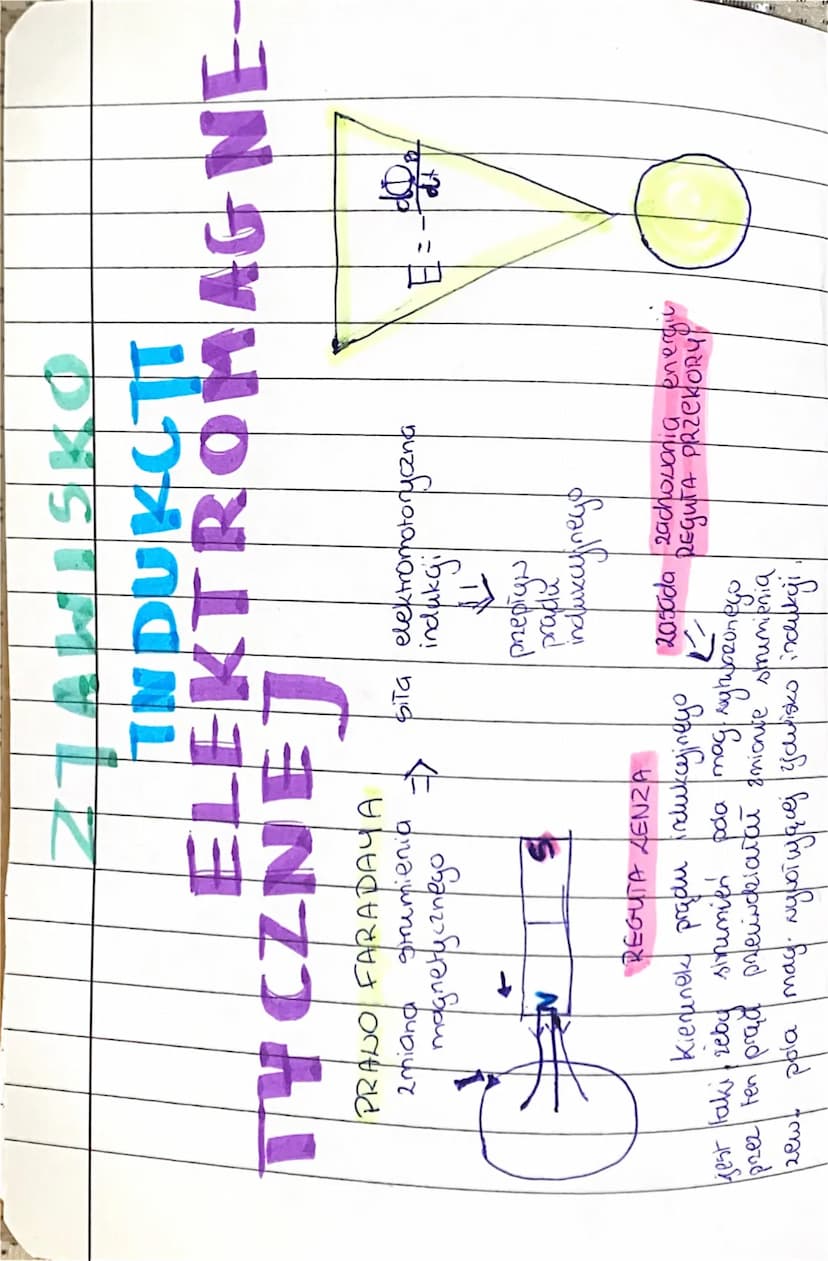 ZJAWISKO
INDUKCJI
ELEKTROMAGNE-
TYCZNEJ
PRAWO FARADAYA
zmiana strumienia
magnetycznego
⇒
siła elektromotoryczna
indukcji
⇓
przepływ
prądu
indukcyjnego
E = - dΦB
dt
I
N S
REGUŁA LENZA
zasada zachowania energii
REGUŁA PRZEKORY
Kierunek prądu indukcyjnego
jest taki, żeby strumień pola mag. wytworzonego
przez ten prąd przeciwdziałał zmianie strumienia
zew. pola mag. wywołującej zjawisko indukcji.